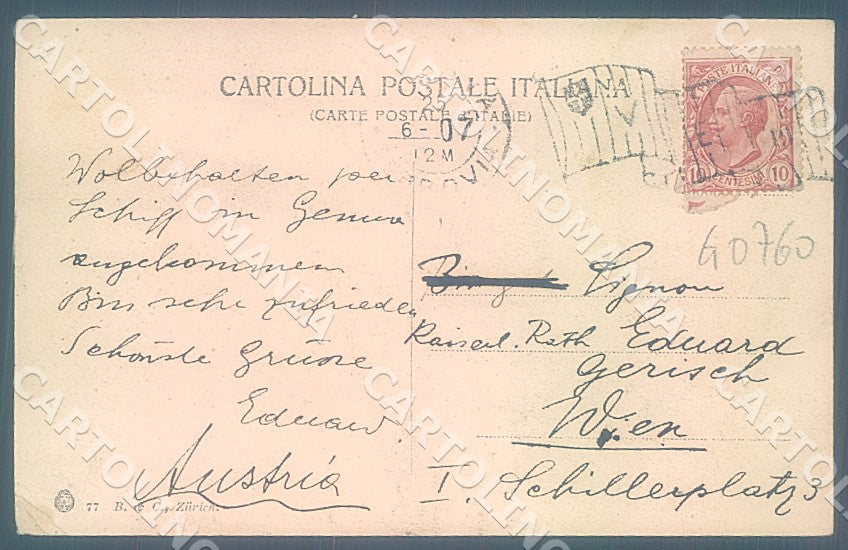 CARTOLINA POSTALE ITALIANA
(CARTE POSTALE D'ITALIE)
25
6-07
12M
POSTE ITALIANE
10 CENTESIMI 10
G0760
Wolbehalten per
Schiff in Genua
angekommen
Bin sehr zufrieden
Schönste Grüsse
Eduard.
Austria
Signor
Kaiserl. Rath Eduard
Gerisch
Wien
I. Schillerplatz 3
77 B. & C., Zürich.
CARTOLINOMANIA